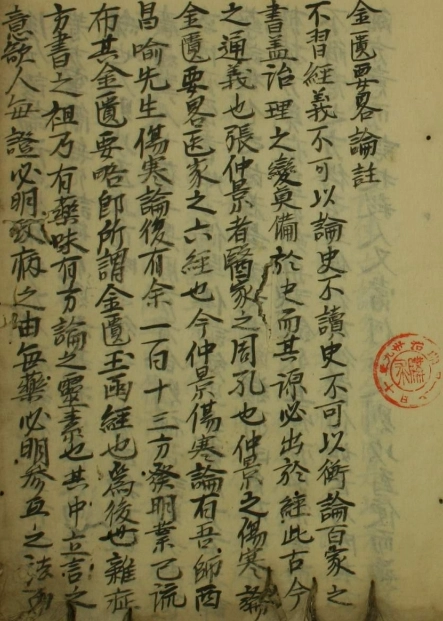 金匱要畧論註
不習經義不可以論史不讀史不可以衡論百家之
書蓋治理之變莫備於史而其源必出於經此古今
之通義也張仲景者醫家之周孔也仲景之傷寒論
金匱要畧医家之六經也今仲景傷寒論有吾師西
昌喻先生傷寒論後有余一百十三方發明業已流
布其金匱要略即所謂金匱玉函經也為後世雜症
方書之祖乃有藥味有方論之靈素也其中立言之
意欲人每證必明致病之由每藥必明參互之法